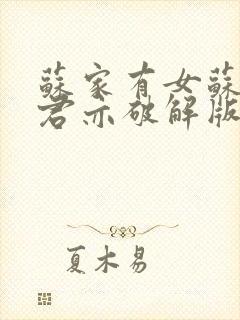 蘇家有女蘇
君亦破解版
夏木易